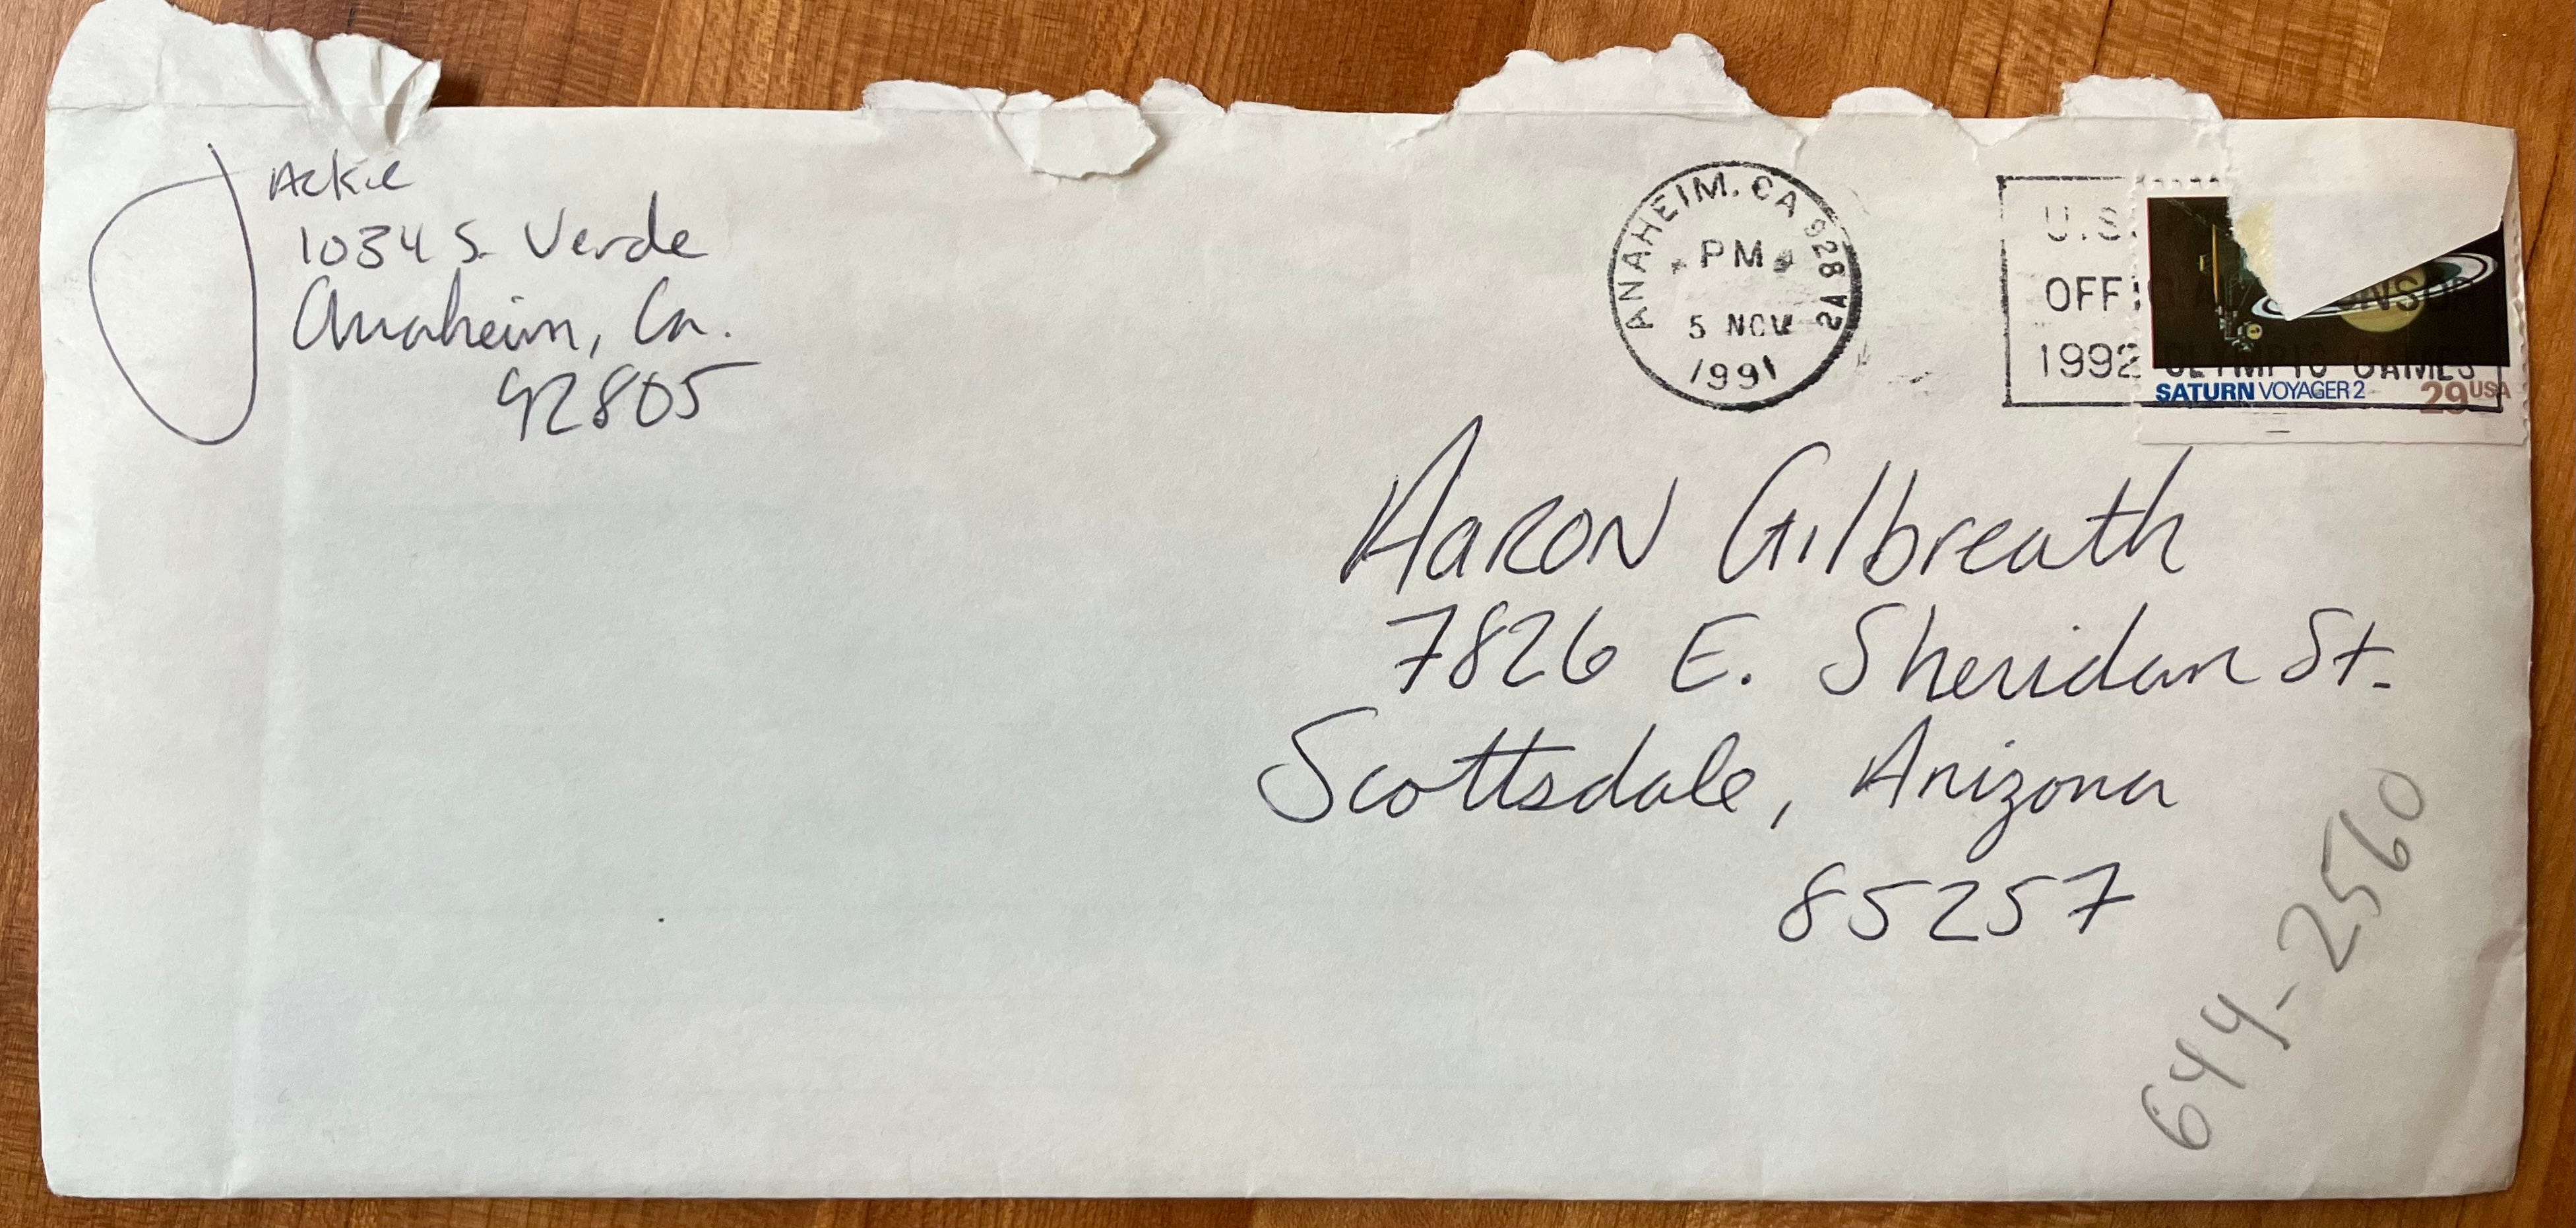 Jackie
1034 S. Verde
Anaheim, Ca.
92805
ANAHEIM, CA 928
PM
5 NOV
1991
U.S.
OFF
1992 OLYMPIC GAMES
SATURN VOYAGER 2
29 USA
Aaron Gilbreath
7826 E. Sheridan St.
Scottsdale, Arizona
85257
644-2560